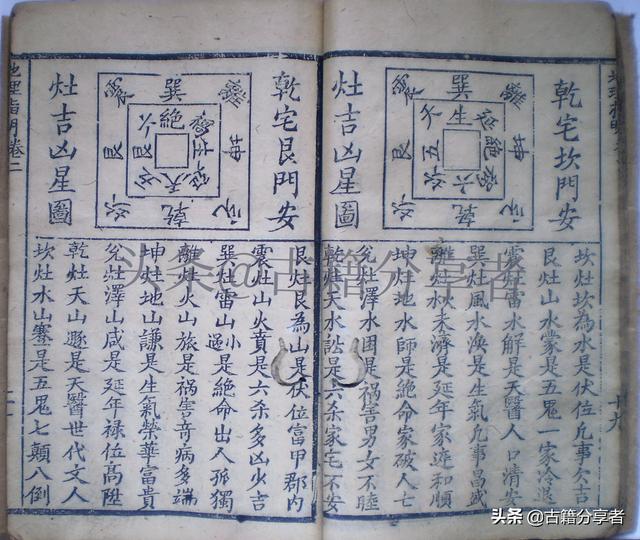 乾宅坎門安
灶吉凶星圖
離
巽
震
坤
艮
坎
乾
兌
生
天
五
六
禍
絕
延
坎灶坎為水是伏位凡事欠吉
艮灶山水蒙是五鬼一家冷退
震灶雷水解是天醫人口清安
巽灶風水渙是生氣凡事昌盛
離灶火未濟是延年家迎和順
坤灶地水師是絕命家破人亡
兌灶澤水困是禍害男女不睦
乾灶天水訟是六杀家宅不安
乾宅艮門安
灶吉凶星圖
離
巽
震
坤
艮
坎
乾
兌
絕
六
五
天
延
生
禍
艮灶艮為山是伏位富甲郡內
震灶山火賁是六杀多凶火吉
巽灶雷山小過是絕命出入孤獨
離灶火山旅是禍害奇病多端
坤灶地山謙是生氣榮華富貴
兌灶澤山咸是延年祿位高陞
乾灶天山遯是天醫世代文人
坎灶水山蹇是五鬼七顛八倒
地理指明卷二
头条@古籍分享者
头条 @古籍分享者